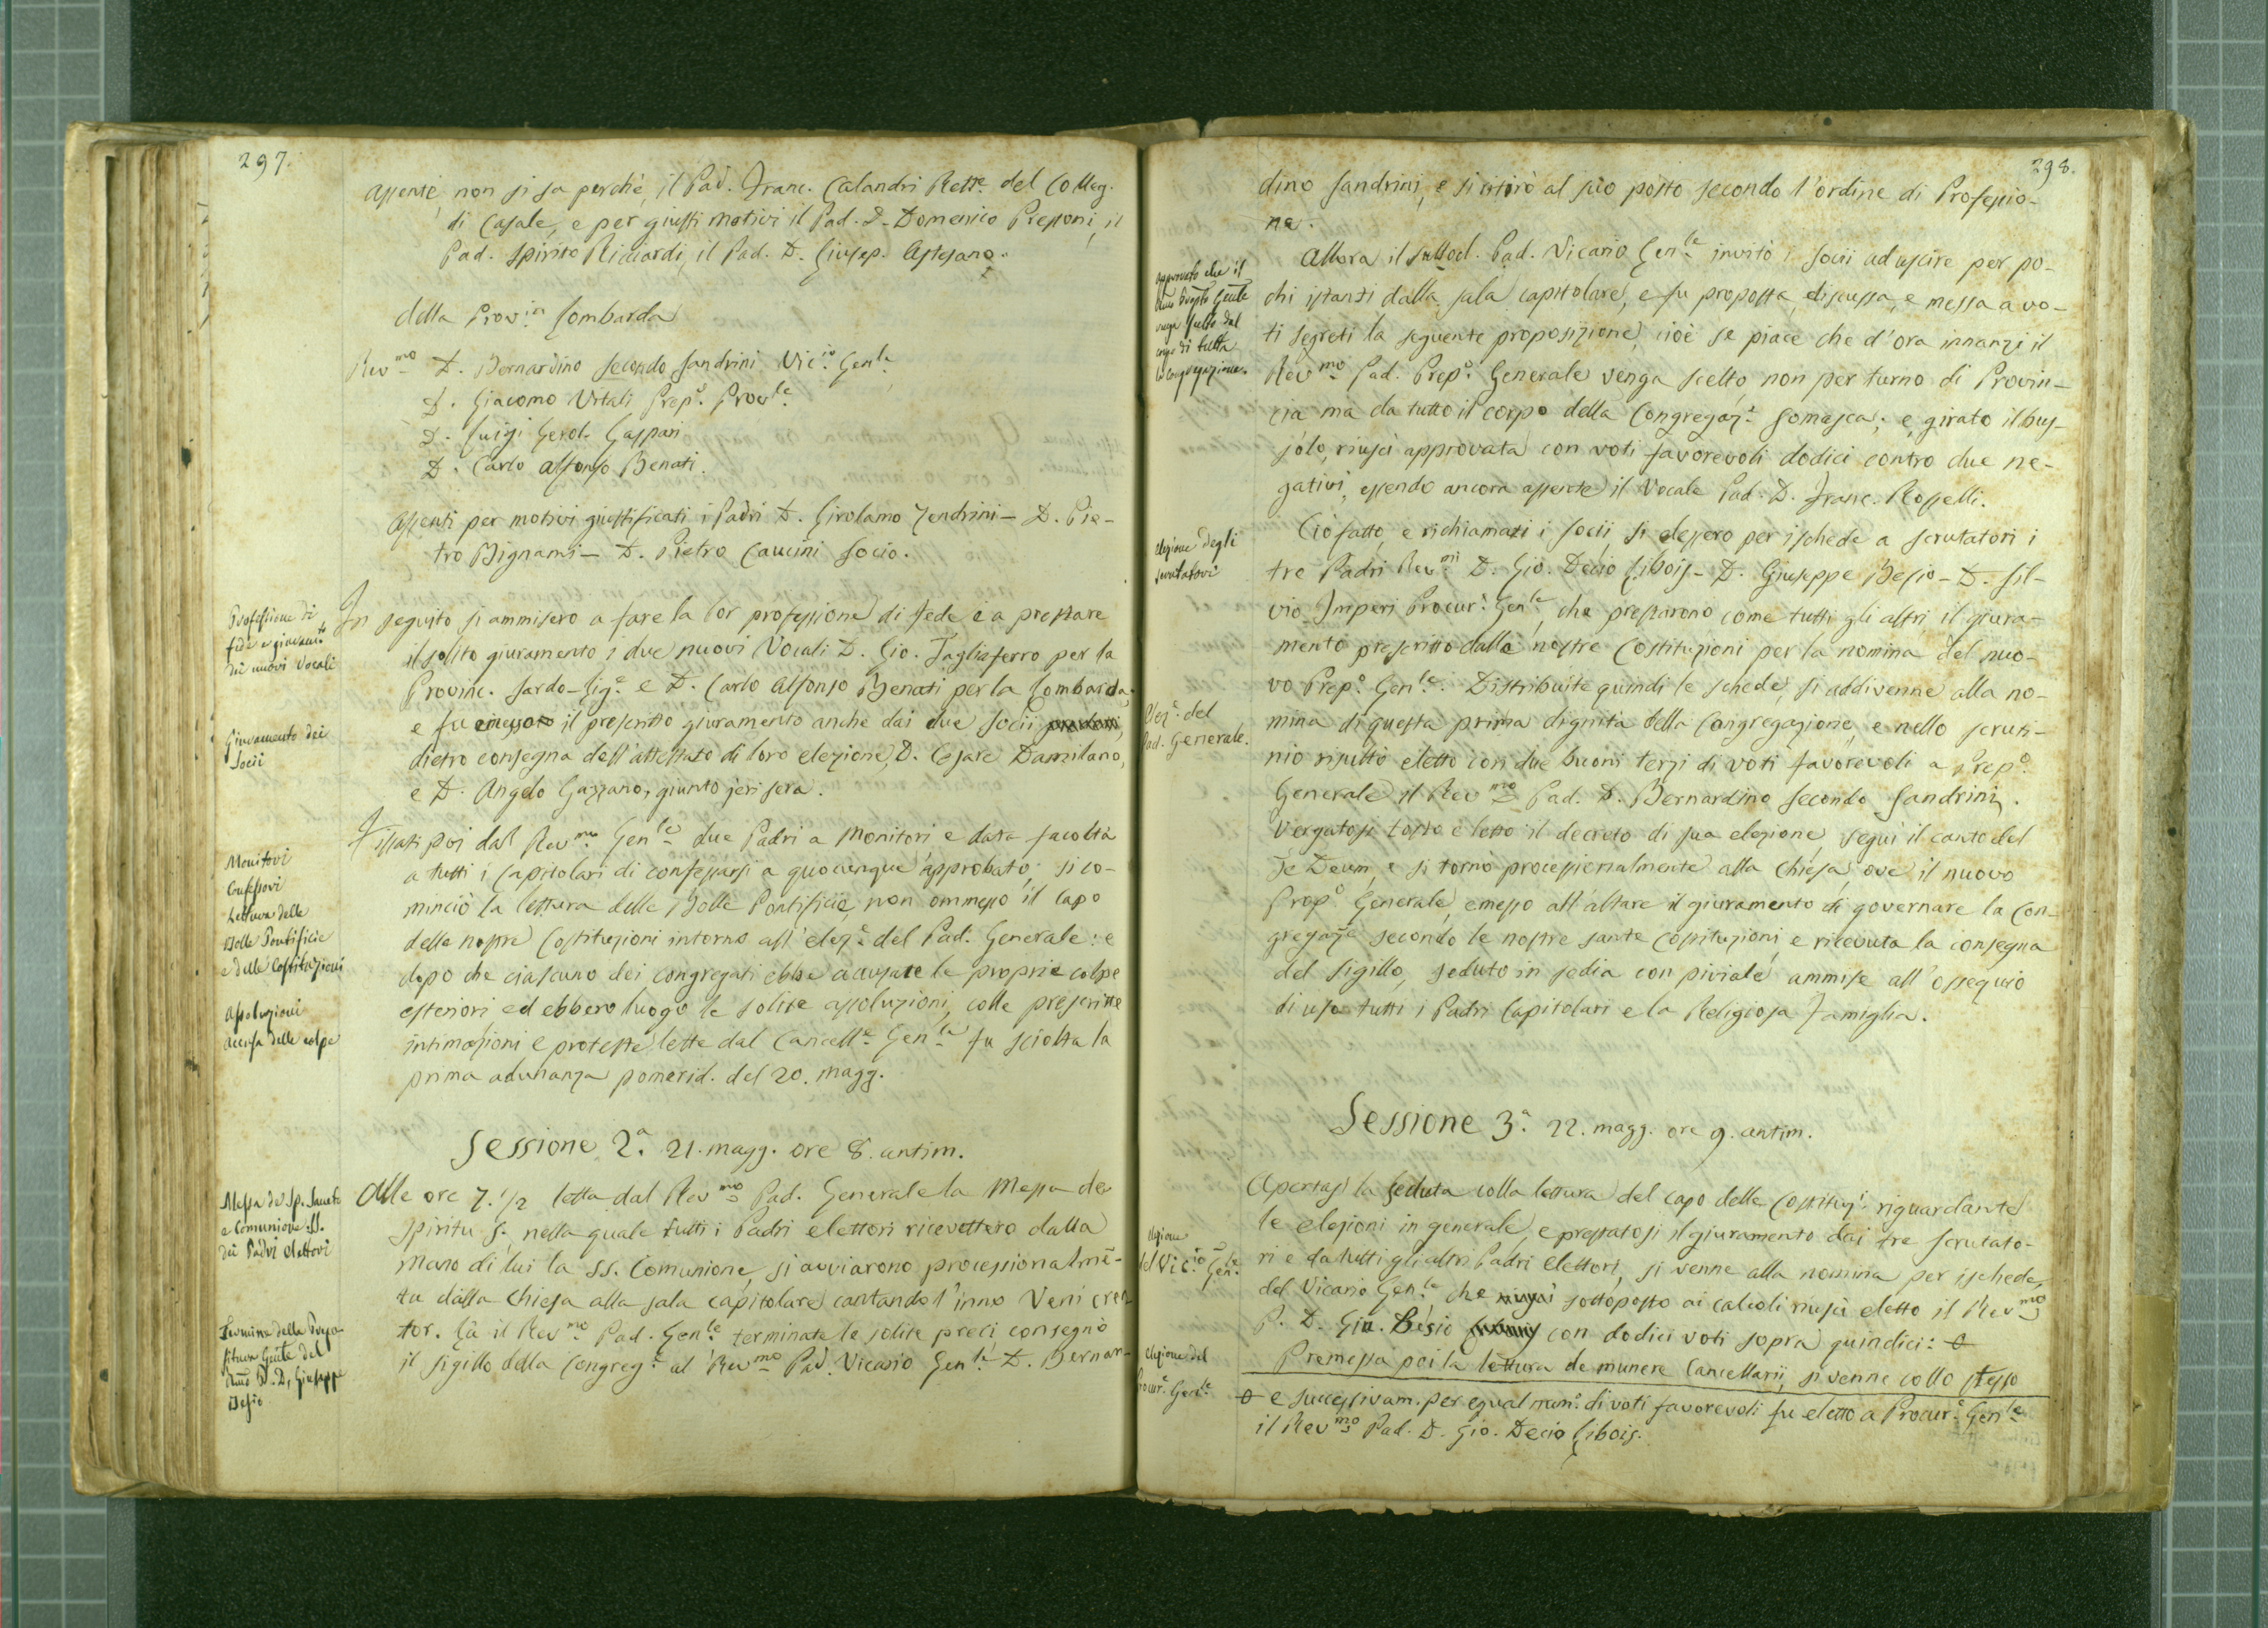 297.
assente, non si sa perchè, il Pad. Franc. Calandri Rett.e del Colleg.
di Casale, e per giusti motivi il Pad. D. Domenico Pressoni, il
Pad. Spirito Ricciardi, il Pad. D. Giusep. Astesano.
della Provin Lombarda
Rev.mo D. Bernardino Secondo Sandrini Vic.io Gen.le
D. Giacomo Vitali Prep.o Prov.le
D. Luigi Gerol. Gaspari
D. Carlo Alfonso Benati.
Assenti per motivi giustificati i Padri D. Girolamo Zendrini - D. Pie-
tro Bignami - D. Pietro Caucini Socio.
Professione di
fede e giuramto
dei nuovi Vocali
In seguito si ammisero a fare la lor professione di fede e a prestare
il solito giuramento i due nuovi Vocali D. Gio. Tagliaferro per la
Provinc. Sardo-Lig.e e D. Carlo Alfonso Benati per la Lombarda:
Giuramento dei
Socii
e fu emesso il prescritto giuramento anche dai due Socii
dietro consegna dell'attestato di loro elezione, D. Cesare Damilano,
e D. Angelo Gazzano, giunto jeri sera.
Monitori
Confessori
Lettura delle
Bolle Pontificie
e delle Costituzioni
Assoluzioni
Accusa delle colpe
Fissati poi dal Rev.mo Gen.le due Padri a Monitori, e data facoltà
a tutti i Capitolari di confessarsi a quocunque approbato, si co-
minciò la lettura delle Bolle Pontificie, non ommesso il capo
delle nostre Costituzioni intorno all'elez.e del Pad. Generale: e
dopo che ciascuno dei congregati ebbe accusate le proprie colpe
esteriori ed ebbero luogo le solite assoluzioni, colle prescritte
intimazioni e proteste lette dal Cancell.e Gen.le fu sciolta la
prima adunanza pomerid. del 20. magg.
Sessione 2.a 21. magg. ore 8. antim.
Messa de Sp. Sancto
e Comunione SS.
dei Padri elettori
Alle ore 7. 1/2 letta dal Rev.mo Pad. Generale la Messa de
Spiritu S. nella quale tutti i Padri elettori ricevettero dalla
mano di lui la SS. Comunione, si avviarono processionalmē-
te dalla Chiesa alla sala capitolare cantando l'inno Veni crea
Termine della Prepo-
situra Genle del
Rmo P. D. Giuseppe
Besio
tor. Là il Rev.mo Pad. Gen.le terminate le solite preci consegnò
il sigillo della Congreg.e al Rev.mo Pad. Vicario Gen.le D. Bernar-
298.
dino Sandrini, e si ritirò al suo posto secondo l'ordine di Professio-
ne.
Approvato che il
Rmo Prepto Genle
venga scelto dal
corpo di tutta
la Congregazione.
Allora il sullod. Pad. Vicario Gen.le invitò i Socii ad uscire per po-
chi istanti dalla sala capitolare, e fu proposta, discussa, e messa a vo-
ti segreti la seguente proposizione, cioè se piace che d'ora innanzi il
Rev.mo Pad. Prep.o Generale venga scelto, non per turno di Provin-
cia ma da tutto il corpo della Congregaz.e Somasca; e, girato il bus-
solo, riuscì approvata con voti favorevoli dodici contro due ne-
gativi, essendo ancora assente il Vocale Pad. D. Franc. Rosselli.
elezione degli
scrutatori
Ciò fatto, e richiamati i Socii si elessero per ischede a scrutatori i
tre Padri Rev.mi D. Gio. Decio Libois - D. Giuseppe Besio - D. Sil-
vio Imperi Procur.e Gen.le, che prestarono come tutti gli altri il giura-
mento prescritto dalle nostre Costituzioni per la nomina del nuo-
vo Prep.o Gen.le. Distribuite quindi le schede, si addivenne alla no-
Elez.e del
Pad. Generale.
mina di questa prima dignità della Congregazione, e nello scruti-
nio risultò eletto con due buoni terzi di voti favorevoli a Prep.o
Generale il Rev.mo Pad. D. Bernardino Secondo Sandrini.
Vergatosi tosto e letto il decreto di sua elezione, seguì il canto del
Te Deum, e si tornò processionalmente alla Chiesa, ove il nuovo
Prep.o Generale, emesso all'altare il giuramento di governare la Con-
gregaz.e secondo le nostre sante Costituzioni, e ricevuta la consegna
del Sigillo, seduto in sedia con piviale, ammise all'ossequio
di uso tutti i Padri Capitolari e la Religiosa Famiglia.
Sessione 3.a 22. magg. ore 9. antim.
Apertasi la seduta colla lettura del capo delle Costituz.i riguardante
le elezioni in generale, e prestatosi il giuramento dai tre scrutato-
elezione
del Vic.io Gen.le
ri e da tutti gli altri Padri elettori, si venne alla nomina per ischede,
del Vicario Gen.le che sottoposto ai calcoli riuscì eletto il Rev.mo
P. D. Giu. Besio con dodici voti sopra quindici: θ
Premessa poi la lettura de munere Cancellarii, si venne collo stesso
elezione del
Procur.e Gen.le
θ e successivam. per egual num.o di voti favorevoli fu eletto a Procur.e Gen.le
il Rev.mo Pad. D. Gio. Decio Libois.